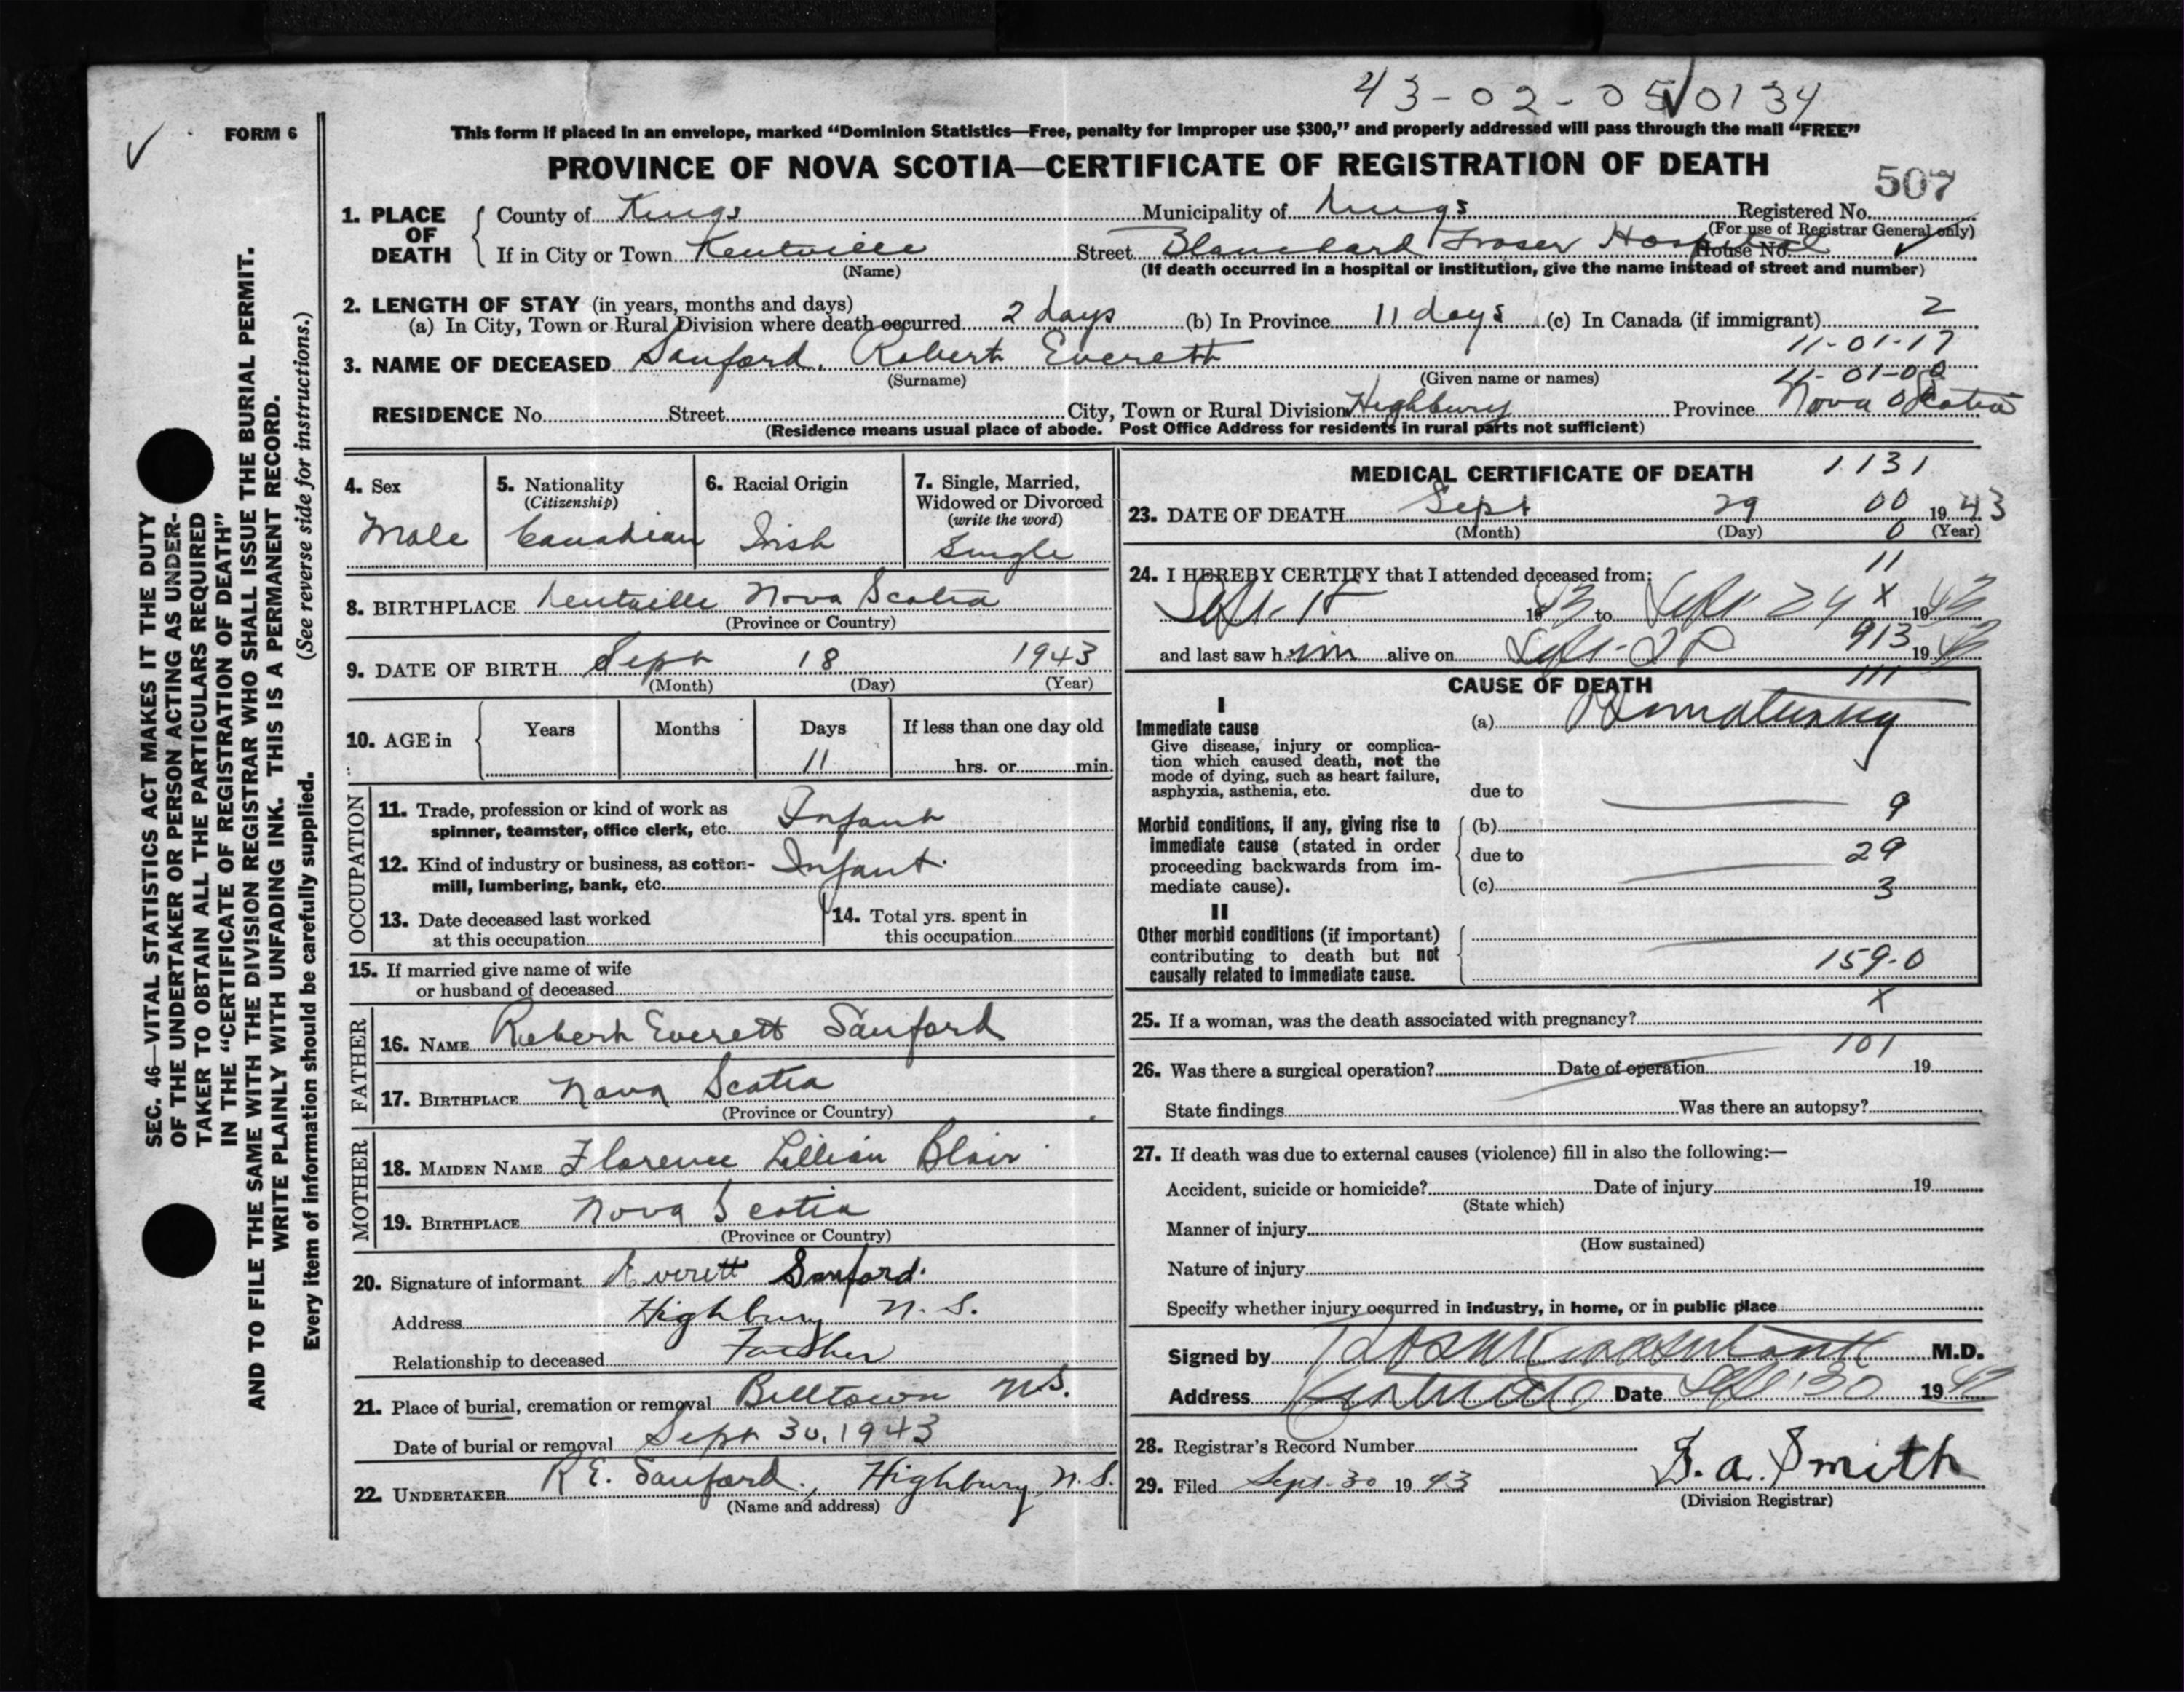 43-02-05 0134
FORM 6
This form if placed in an envelope, marked “Dominion Statistics—Free, penalty for improper use $300,” and properly addressed will pass through the mail “FREE”
PROVINCE OF NOVA SCOTIA—CERTIFICATE OF REGISTRATION OF DEATH
507
1. PLACE OF DEATH
County of Kings Municipality of Kings Registered No.
(For use of Registrar General only)
If in City or Town Kentville Street Blanchard Fraser Hospital House No.
(Name) (If death occurred in a hospital or institution, give the name instead of street and number)
2. LENGTH OF STAY (in years, months and days)
(a) In City, Town or Rural Division where death occurred 2 days (b) In Province 11 days (c) In Canada (if immigrant) 2
11-01-17
3. NAME OF DECEASED Sanford, Robert Everett
(Surname) (Given name or names) 11-01-00
RESIDENCE No. Street City, Town or Rural Division Highbury Province Nova Scotia
(Residence means usual place of abode. Post Office Address for residents in rural parts not sufficient)
4. Sex
Male
5. Nationality
(Citizenship)
Canadian
6. Racial Origin
Irish
7. Single, Married,
Widowed or Divorced
(write the word)
Single
8. BIRTHPLACE Kentville Nova Scotia
(Province or Country)
9. DATE OF BIRTH Sept 18 1943
(Month) (Day) (Year)
10. AGE in Years Months Days If less than one day old
11 hrs. or min.
OCCUPATION
11. Trade, profession or kind of work as
spinner, teamster, office clerk, etc. Infant
12. Kind of industry or business, as cotton-
mill, lumbering, bank, etc. Infant.
13. Date deceased last worked
at this occupation
14. Total yrs. spent in
this occupation
15. If married give name of wife
or husband of deceased
FATHER
16. NAME Robert Everett Sanford
17. BIRTHPLACE Nova Scotia
(Province or Country)
MOTHER
18. MAIDEN NAME Florence Lillian Blair
19. BIRTHPLACE Nova Scotia
(Province or Country)
20. Signature of informant Everett Sanford.
Address Highbury N.S.
Relationship to deceased Father
21. Place of burial, cremation or removal Billtown N.S.
Date of burial or removal Sept 30, 1943
22. UNDERTAKER R E. Sanford, Highbury, N.S.
(Name and address)
MEDICAL CERTIFICATE OF DEATH 1131
23. DATE OF DEATH Sept 29 00 1943
(Month) (Day) 0 (Year)
11
24. I HEREBY CERTIFY that I attended deceased from:
Sept. 18 1943 to Sept 29 x 1943
and last saw him alive on Sept. 28 913 1943
CAUSE OF DEATH 111
I
Immediate cause
Give disease, injury or complica-
tion which caused death, not the
mode of dying, such as heart failure,
asphyxia, asthenia, etc.
(a) Prematurity
due to
Morbid conditions, if any, giving rise to
immediate cause (stated in order
proceeding backwards from im-
mediate cause).
(b) 9
due to 29
(c) 3
II
Other morbid conditions (if important)
contributing to death but not
causally related to immediate cause.
159-0
x
25. If a woman, was the death associated with pregnancy?
101
26. Was there a surgical operation? Date of operation 19
State findings Was there an autopsy?
27. If death was due to external causes (violence) fill in also the following:—
Accident, suicide or homicide? Date of injury 19
(State which)
Manner of injury
(How sustained)
Nature of injury
Specify whether injury occurred in industry, in home, or in public place
Signed by M.D.
Address Kentville Date Sept 30 1943
28. Registrar's Record Number
29. Filed Sept. 30 1943 A. Smith
(Division Registrar)
SEC. 46—VITAL STATISTICS ACT MAKES IT THE DUTY
OF THE UNDERTAKER OR PERSON ACTING AS UNDER-
TAKER TO OBTAIN ALL THE PARTICULARS REQUIRED
IN THE “CERTIFICATE OF REGISTRATION OF DEATH”
AND TO FILE THE SAME WITH THE DIVISION REGISTRAR WHO SHALL ISSUE THE BURIAL PERMIT.
WRITE PLAINLY WITH UNFADING INK. THIS IS A PERMANENT RECORD.
Every item of information should be carefully supplied. (See reverse side for instructions.)